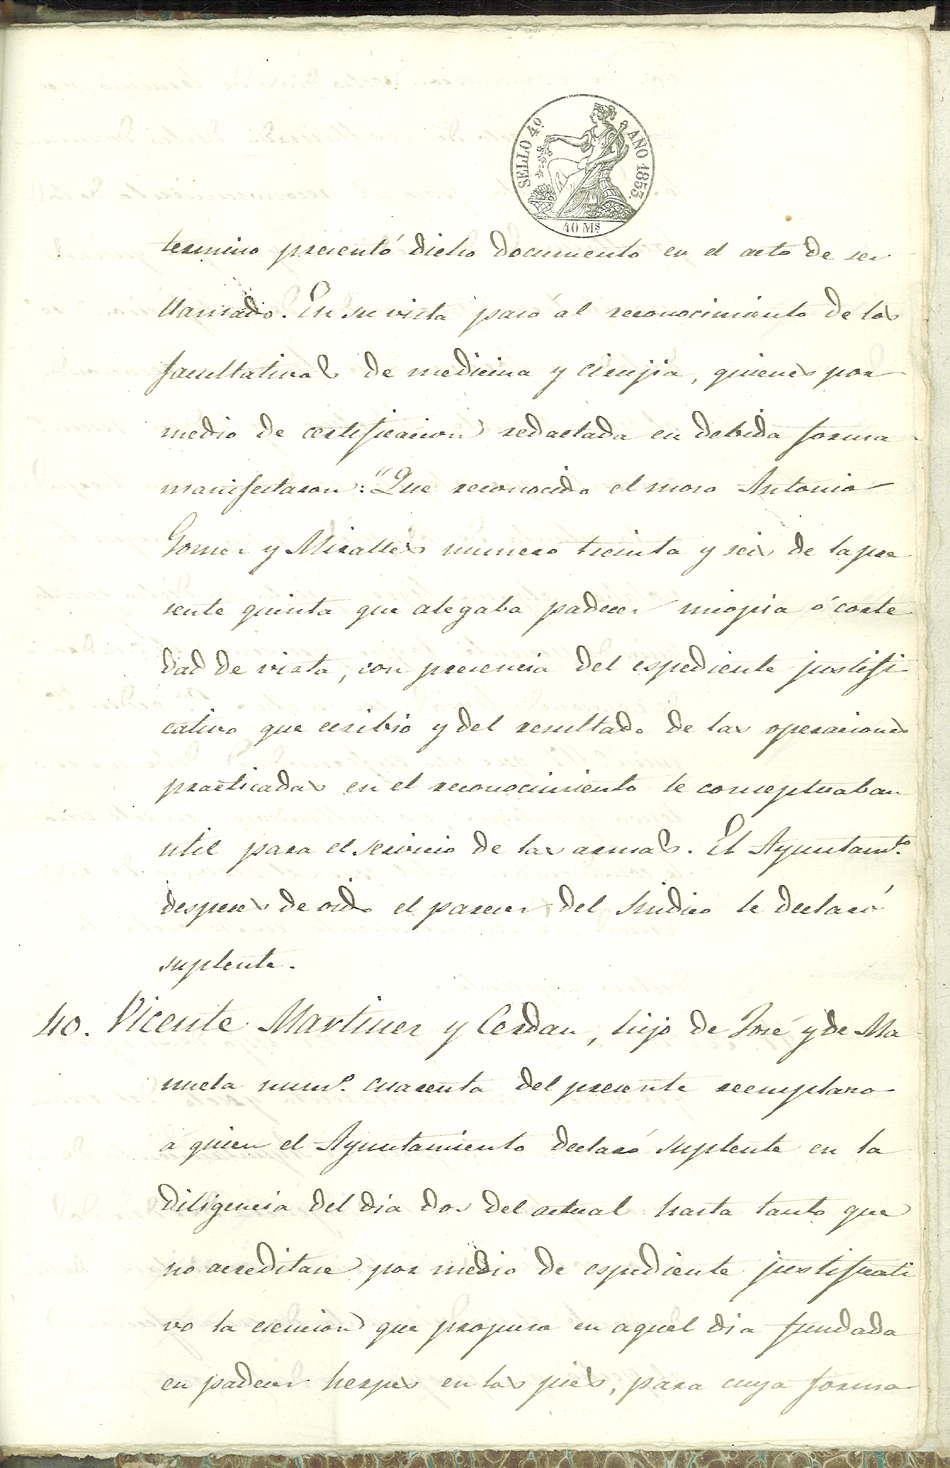 SELLO 4º AÑO 1853.
40 Ms
termino presentó dicho documento en el acto de ser
llamado. En su vista pasó al reconocimiento de los
facultativos de medicina y cirujia, quienes por
medio de certificacion redactada en debida forma
manifestaron: "Que reconocido el moso Antonio
Gomez y Miralles numero treinta y seis de la pre
sente quinta que alegaba padecer miopia ó corte
dad de vista, con presencia del espediente justifi
cativo que exibio y del resultado de las operaciones
practicadas en el reconocimiento le conceptuaban
util para el servicio de las armas. El Ayuntamto.
despues de oido el parecer del Sindico le declaró
suplente.
40. Vicente Martinez y Cerdan, hijo de José y de Ma
nuela numo. cuarenta del presente reemplazo
a quien el Ayuntamiento declaró suplente en la
diligencia del dia dos del actual hasta tanto que
no acreditase por medio de espediente justificati
vo la esencion que propuso en aquel dia fundada
en padecer herpes en los pies, para cuya forma